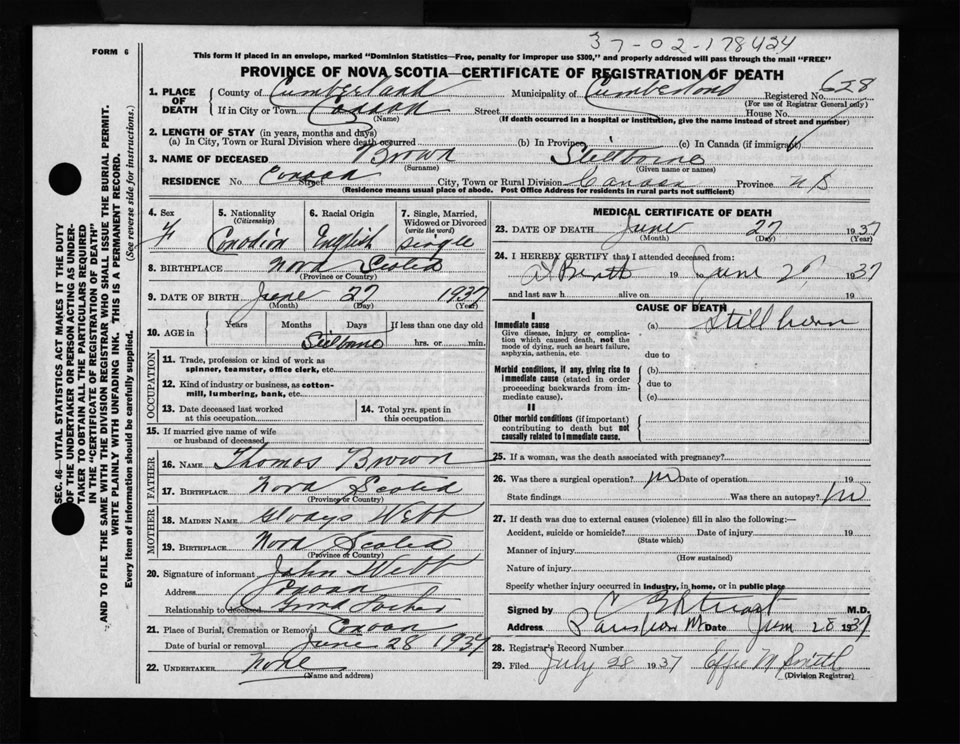 37-02-178424
FORM 6
This form if placed in an envelope, marked "Dominion Statistics—Free, penalty for improper use $300," and properly addressed will pass through the mail "FREE"
PROVINCE OF NOVA SCOTIA—CERTIFICATE OF REGISTRATION OF DEATH
1. PLACE OF DEATH
County of Cumberland Municipality of Cumberland Registered No. 628
(For use of Registrar General only)
If in City or Town Street House No.
(Name) (If death occurred in a hospital or institution, give the name instead of street and number)
2. LENGTH OF STAY (in years, months and days)
(a) In City, Town or Rural Division where death occurred (b) In Province (c) In Canada (if immigrant)
3. NAME OF DECEASED Brown Stelborne
(Surname) (Given name or names)
RESIDENCE No. Street City, Town or Rural Division Province NS
(Residence means usual place of abode. Post Office Address for residents in rural parts not sufficient)
4. Sex F
5. Nationality (Citizenship) Canadian
6. Racial Origin English
7. Single, Married, Widowed or Divorced (write the word) single
8. BIRTHPLACE Nova Scotia
(Province or Country)
9. DATE OF BIRTH June 27 1937
(Month) (Day) (Year)
10. AGE in Years Months Days If less than one day old
Stelborne hrs. or min.
OCCUPATION
11. Trade, profession or kind of work as spinner, teamster, office clerk, etc.
12. Kind of industry or business, as cotton-mill, lumbering, bank, etc.
13. Date deceased last worked at this occupation
14. Total yrs. spent in this occupation
15. If married give name of wife or husband of deceased
FATHER
16. NAME Thomas Brown
17. BIRTHPLACE Nova Scotia
(Province or Country)
MOTHER
18. MAIDEN NAME Gladys Webb
19. BIRTHPLACE Nova Scotia
(Province or Country)
20. Signature of informant John Webb
Address
Relationship to deceased Grand Father
21. Place of Burial, Cremation or Removal
Date of burial or removal June 28 1937
22. UNDERTAKER None
(Name and address)
MEDICAL CERTIFICATE OF DEATH
23. DATE OF DEATH June 27 1937
(Month) (Day) (Year)
24. I HEREBY CERTIFY that I attended deceased from:
At Birth 19 June 1937
and last saw h alive on 19
CAUSE OF DEATH
I
Immediate cause (a) Still born
Give disease, injury or complication which caused death, not the mode of dying, such as heart failure, asphyxia, asthenia, etc.
due to
Morbid conditions, if any, giving rise to immediate cause (stated in order proceeding backwards from immediate cause).
(b)
due to
(c)
II
Other morbid conditions (if important) contributing to death but not causally related to immediate cause.
25. If a woman, was the death associated with pregnancy?
26. Was there a surgical operation? No Date of operation 19
State findings Was there an autopsy? No
27. If death was due to external causes (violence) fill in also the following:—
Accident, suicide or homicide? Date of injury 19
(State which)
Manner of injury
(How sustained)
Nature of injury
Specify whether injury occurred in industry, in home, or in public place
Signed by M.D.
Address Date June 28 1937
28. Registrar's Record Number
29. Filed July 28 1937 Effie M Smith
(Division Registrar)
SEC. 46—VITAL STATISTICS ACT MAKES IT THE DUTY
OF THE UNDERTAKER OR PERSON ACTING AS UNDER-
TAKER TO OBTAIN ALL THE PARTICULARS REQUIRED
IN THE "CERTIFICATE OF REGISTRATION OF DEATH"
AND TO FILE THE SAME WITH THE DIVISION REGISTRAR WHO SHALL ISSUE THE BURIAL PERMIT.
WRITE PLAINLY WITH UNFADING INK. THIS IS A PERMANENT RECORD.
Every item of information should be carefully supplied. (See reverse side for instructions.)